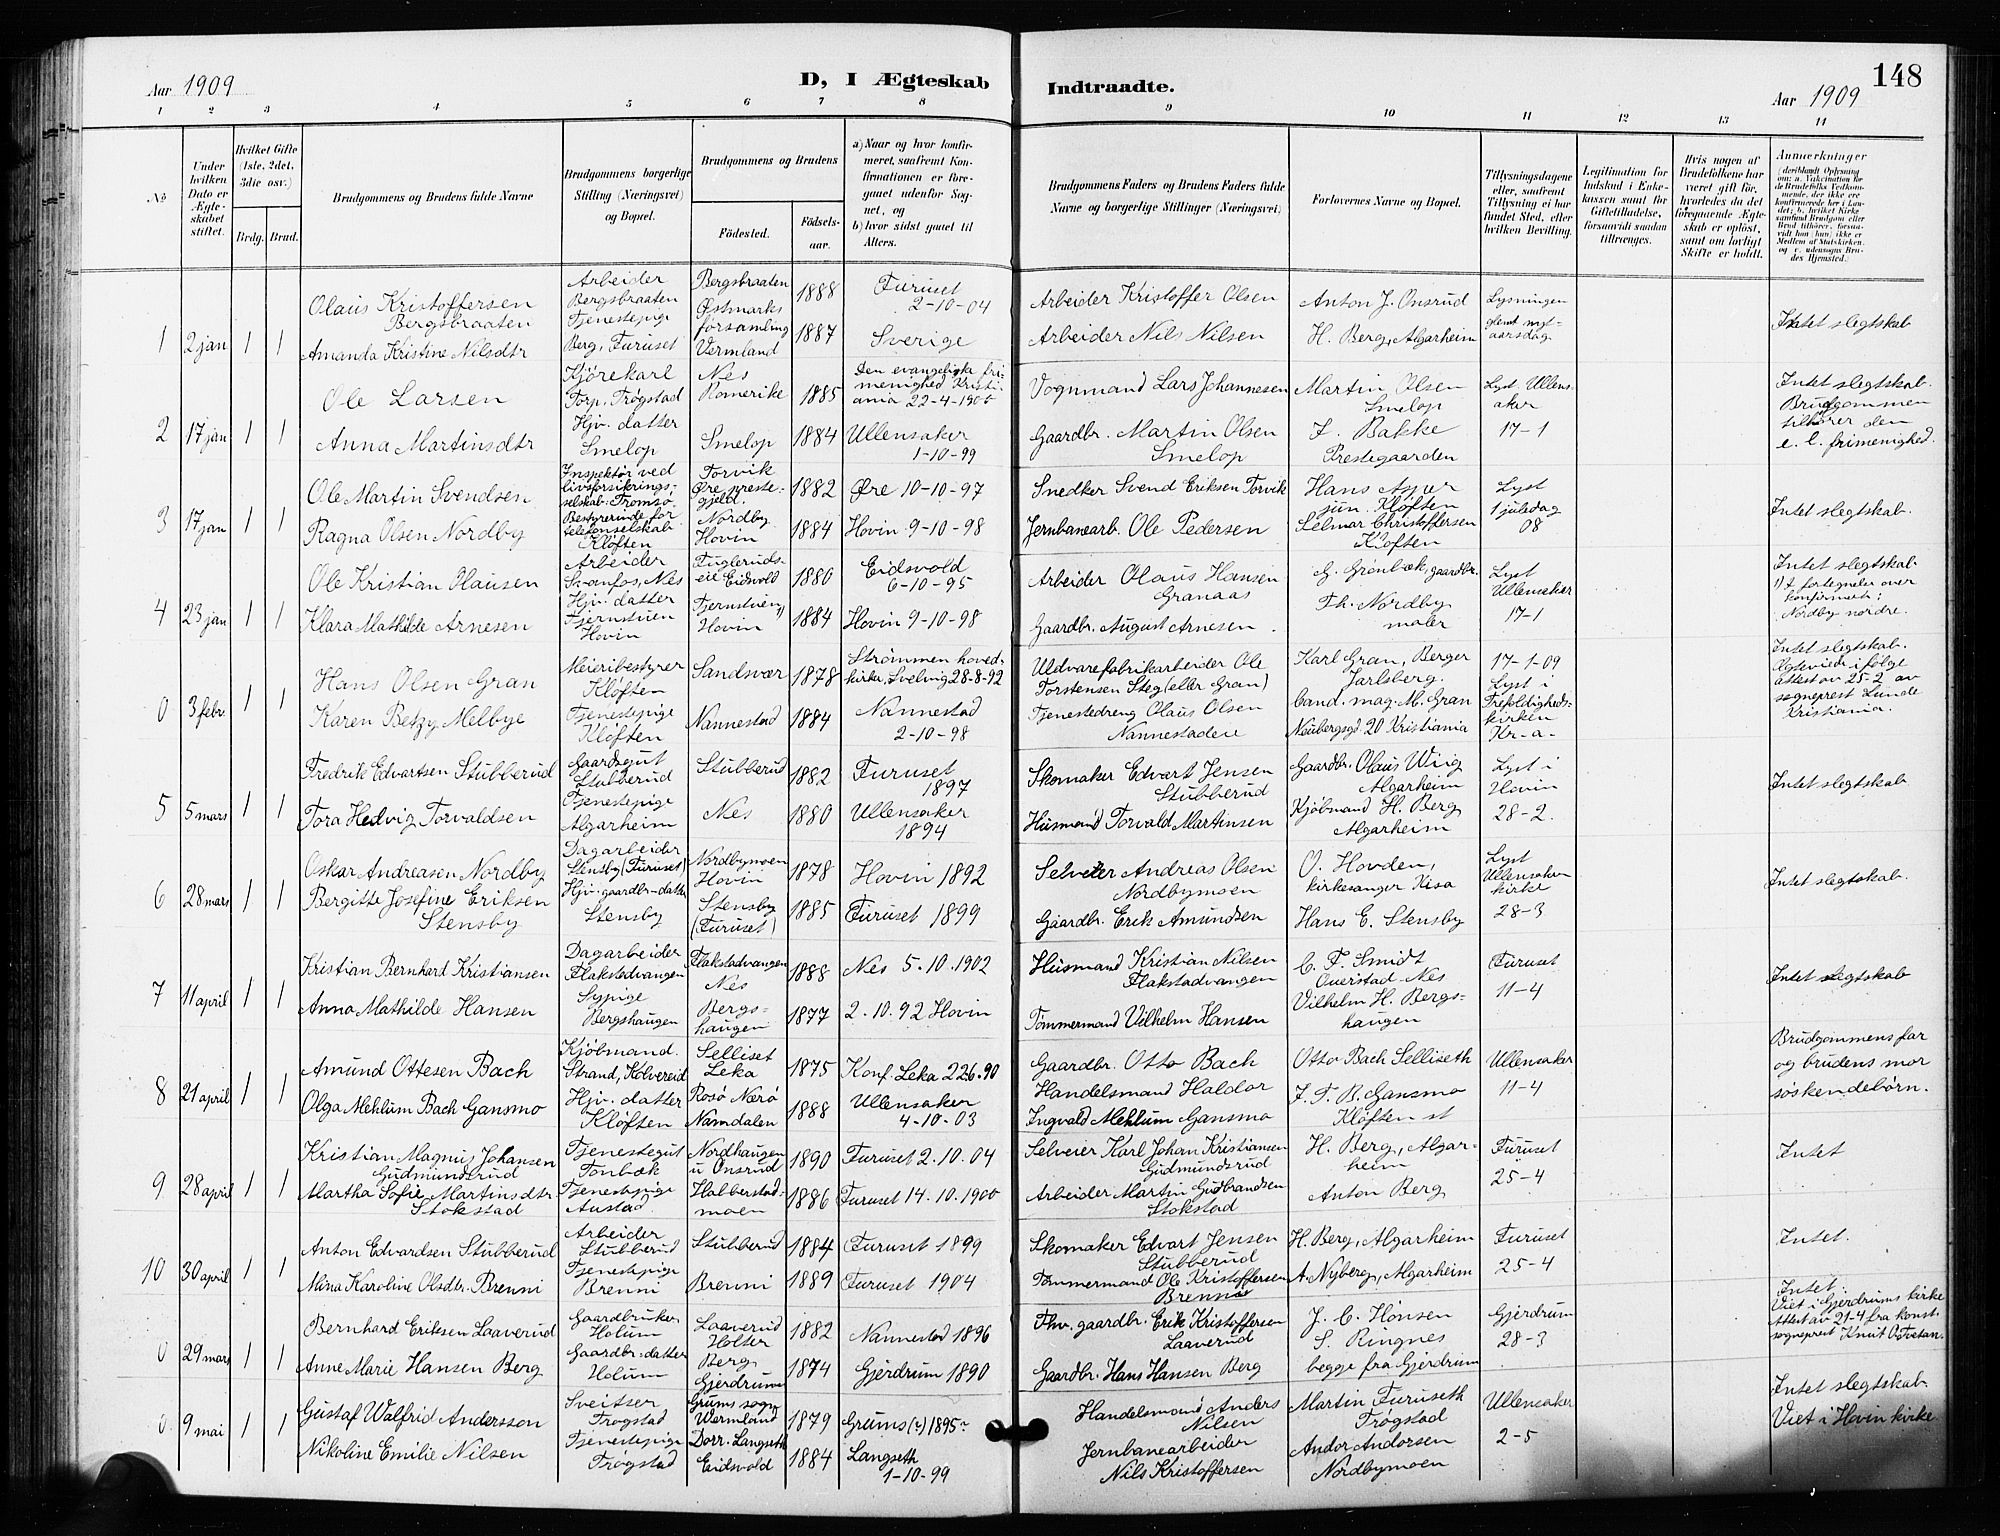 148
Aar 1909
D, I Ægteskab
Indtraadte.
Aar 1909
1 2 3 4 5 6 7 8 9 10 11 12 13 14
No
Under hvilken Dato er Ægteskabet stiftet.
Hvilket Gifte (1ste, 2det, 3die osv.)
Brdg. Brud.
Brudgommens og Brudens fulde Navne
Brudgommens borgerlige Stilling (Næringsvei) og Bopæl.
Brudgommens og Brudens
Fødested.
Fødselsaar.
a) Naar og hvor konfirmeret, saafremt Konfirmationen er foregaaet udenfor Sognet, og
b) hvor sidst gaaet til Alters.
Brudgommens Faders og Brudens Faders fulde Navne og borgerlige Stillinger (Næringsvei)
Forlovernes Navne og Bopæl.
Tillysningsdagene eller, saafremt Tillysning ei har fundet Sted, efter hvilken Bevilling.
Legitimation for Indskud i Enkekassen samt for Giftetilladelse, forsaavidt saadan tiltrænges.
Hvis nogen af Brudefolkene har været gift før, hvorledes da det foregaaende Ægteskab er opløst, samt om lovligt Skifte er holdt.
Anmerkninger
(deriblandt Oplysning om: a. Vakcination for de Brudefolks Vedkommende, der ikke ere konfirmerede her i Landet; b. hvilket Kirkesamfund Brudgom eller Brud tilhører, forsaavidt han (hun) ikke er Medlem af Statskirken, og c. udensogns Brudes Hjemsted.)
1 2 jan 1 1
Olaus Kristoffersen Bergsbraaten
Amanda Kristine Nilsdtr
Arbeider Bergsbraaten
Tjenestepige Berg, Furuset
Bergsbraaten
Østmarks forsamling Vermland
1888
1887
Furuset 2-10-04
Sverige
Arbeider Kristoffer Olsen
Arbeider Nils Nilsen
Anton J. Onsrud
H. Berg, Algarheim
Lysningen glemt nytaarsdag
Intet slegtskab
2 17 jan 1 1
Ole Larsen
Anna Martinsdtr
Kjörekarl Torp, Trøgstad
Hjv. datter Smelop
Nes Romerike
Smelop
1885
1884
Den evangeliske frimenighed Kristiania 22-4-1900
Ullensaker 1-10-99
Vognmand Lars Johannesen
Gaardbr. Martin Olsen Smelop
Martin Olsen Smelop
J. Bakke Prestegaarden
Lyst Ullensaker 17-1
Intet slegtskab. Brudgommen tilhører den e. l. frimenighed.
3 17 jan 1 1
Ole Martin Svendsen
Ragna Olsen Nordby
Inspektør ved livsforsikringsselskab. Tromsø
Bestyrerinde for telefonselskab Kløften
Torvik Øre prestegjeld.
Nordby Hovin
1882
1884
Øre 10-10-97
Hovin 9-10-98
Snedker Svend Eriksen Torvik
Jernbanearb. Ole Pedersen
Hans Asper jun. Kløften
Selmar Christoffersen Kløften
Lyst 1 juledag 08
Intet slegtskab.
4 23 jan 1 1
Ole Kristian Olausen
Klara Mathilde Arnesen
Arbeider Svanfos, Nes
Hjv. datter Tjernstuen Hovin
Fuglerudseie Eidsvold
Tjernstuen 1) Hovin
1880
1884
Eidsvold 6-10-95
Hovin 9-10-98
Arbeider Olaus Hansen Granaas
Gaardbr. August Arnesen
G. Grønbæk, gaardbr.
Th. Nordby maler
Lyst Ullensaker 17-1
Intet slegtskab
1) I fortegnelse over konfirmerte: Nordby nordre.
0 3 febr. 1 1
Hans Olsen Gran
Karen Betzy Melbye
Meieribestyrer Kløften
Tjenestepige Kløften
Sandsvær
Nannestad
1878
1884
Strømmen hovedkirke, Svelvig 28-8-92
Nannestad 2-10-98
Uldvarefabrikarbeider Ole Torstensen Steg (eller Gran)
Tjenestedreng Olaus Olsen Nannestadeie
Karl Gran, Berger Jarlsberg.
Cand. mag. M. Gran Neubergsgd. 20 Kristiania
17-1-09 Lyst i Trefoldighedskirken Kr-a-
Intet slegtskab. Ægteviede i følge attest av 25-2 av sogneprest Lunde Kristiania.
5 5 mars 1 1
Fredrik Edvartsen Stubberud
Tora Hedvig Torvaldsen
Gaardsgut Stubberud
Tjenestepige Algarheim
Stubberud
Nes
1882
1880
Furuset 1897
Ullensaker 1894
Skomaker Edvart Jensen Stubberud
Husmand Torvald Martinsen
Gaardbr. Olaus Wiig Algarheim
Kjøbmand H. Berg Algarheim
Lyst i Hovin 28-2.
Intet slegtskab.
6 28 mars 1 1
Oskar Andreasen Nordby
Bergitte Josefine Eriksen Stensby
Dagarbeider Stensby (Furuset)
Hjv. gaardbr-datter Stensby
Nordbymoen Hovin
Stensby (Furuset)
1878
1885
Hovin 1892
Furuset 1899
Selveier Andreas Olsen Nordbymoen
Gaardbr. Erik Amundsen
O. Hovden, kirkesanger Kisa
Hans E. Stensby
Lyst Ullensaker kirke 28-3
Intet slegtskab.
7 11 april 1 1
Kristian Bernhard Kristiansen
Anna Mathilde Hansen
Dagarbeider Flakstadvangen
Sypige Bergshaugen
Flakstadvangen Nes
Bergshaugen
1888
1877
Nes 5.10.1902
2.10.92 Hovin
Husmand Kristian Nilsen Flakstadvangen
Tømmermand Vilhelm Hansen
C. F. Smidt Ouerstad Nes
Vilhelm H. Bergshaugen
Furuset 11-4
Intet slegtskab
8 21 april 1 1
Amund Ottesen Bach
Olga Mehlum Bach Gansmo
Kjöbmand. Strand, Kolvereid
Hjv. datter Kløften
Selliset Leka
Rosø Nærø Namdalen
1875
1888
Konf. Leka 22.6.90
Ullensaker 4-10-03
Gaardbr. Otto Bach
Handelsmand Haldor Ingvald Mehlum Gansmo
Otto Bach Selliseth
J. T. B. Gansmo Kløften st
Ullensaker 11-4
Brudgommens far og brudens mor søskendebørn.
9 28 april 1 1
Kristian Magnus Johansen Gudmundsrud
Martha Sofie Martinsdtr Stokstad
Tjenestegut Tonbæk
Tjenestepige Austad
Nordhaugen u Onsrud
Halberstadmoen
1890
1886
Furuset 2.10.04
Furuset 14.10.1900
Selveier Karl Johan Kristiansen Gudmundsrud
Arbeider Martin Gudbrandsen Stokstad
H. Berg, Algarheim
Anton Berg
Furuset 25-4
Intet
10 30 april 1 1
Anton Edvardsen Stubberud
Mina Karoline Olsdtr. Brenni
Arbeider Stubberud
Tjenestepige Brenni
Stubberud
Brenni
1884
1889
Furuset 1899
Furuset 1904
Skomaker Edvart Jensen Stubberud
Tømmermand Ole Kristoffersen Brenni
H. Berg, Algarheim
A. Nyberg, Algarheim
Furuset 25-4
Intet.
0 29 mars 1 1
Bernhard Eriksen Laaverud
Anne Marie Hansen Berg
Gaardbruker Holum
Gaardbr-datter Holum
Laaverud Holter
Berg Gjerdrum
1882
1874
Nannestad 1896
Gjerdrum 1890
Fhv. gaardbr. Erik Kristoffersen Laaverud
Gaardbr. Hans Hansen Berg
J. C. Hønsen
S. Ringnes
begge fra Gjerdrum
Gjerdrum 28-3
Intet
Viet i Gjerdrums kirke Attest av 21-4 fra konst. sogneprest Knut O. Tvetan.
0 9 mai 1 1
Gustaf Walfrid Andersson
Nikoline Emilie Nilsen
Sveitser Trøgstad
Tjenestepige Trøgstad
Grums sogn Wermland
Dorr. Langseth Eidsvold
1879
1884
Grums (?) 1895
Langseth 1-10-99
Handelsmand Anders Nilsen
Jernbanearbeider Nils Kristoffersen
Martin Furuseth Trøgstad
Andor Andorsen Nordbymoen
Ullensaker 2-5
Intet slegtskab.
Viet i Hovin kirke